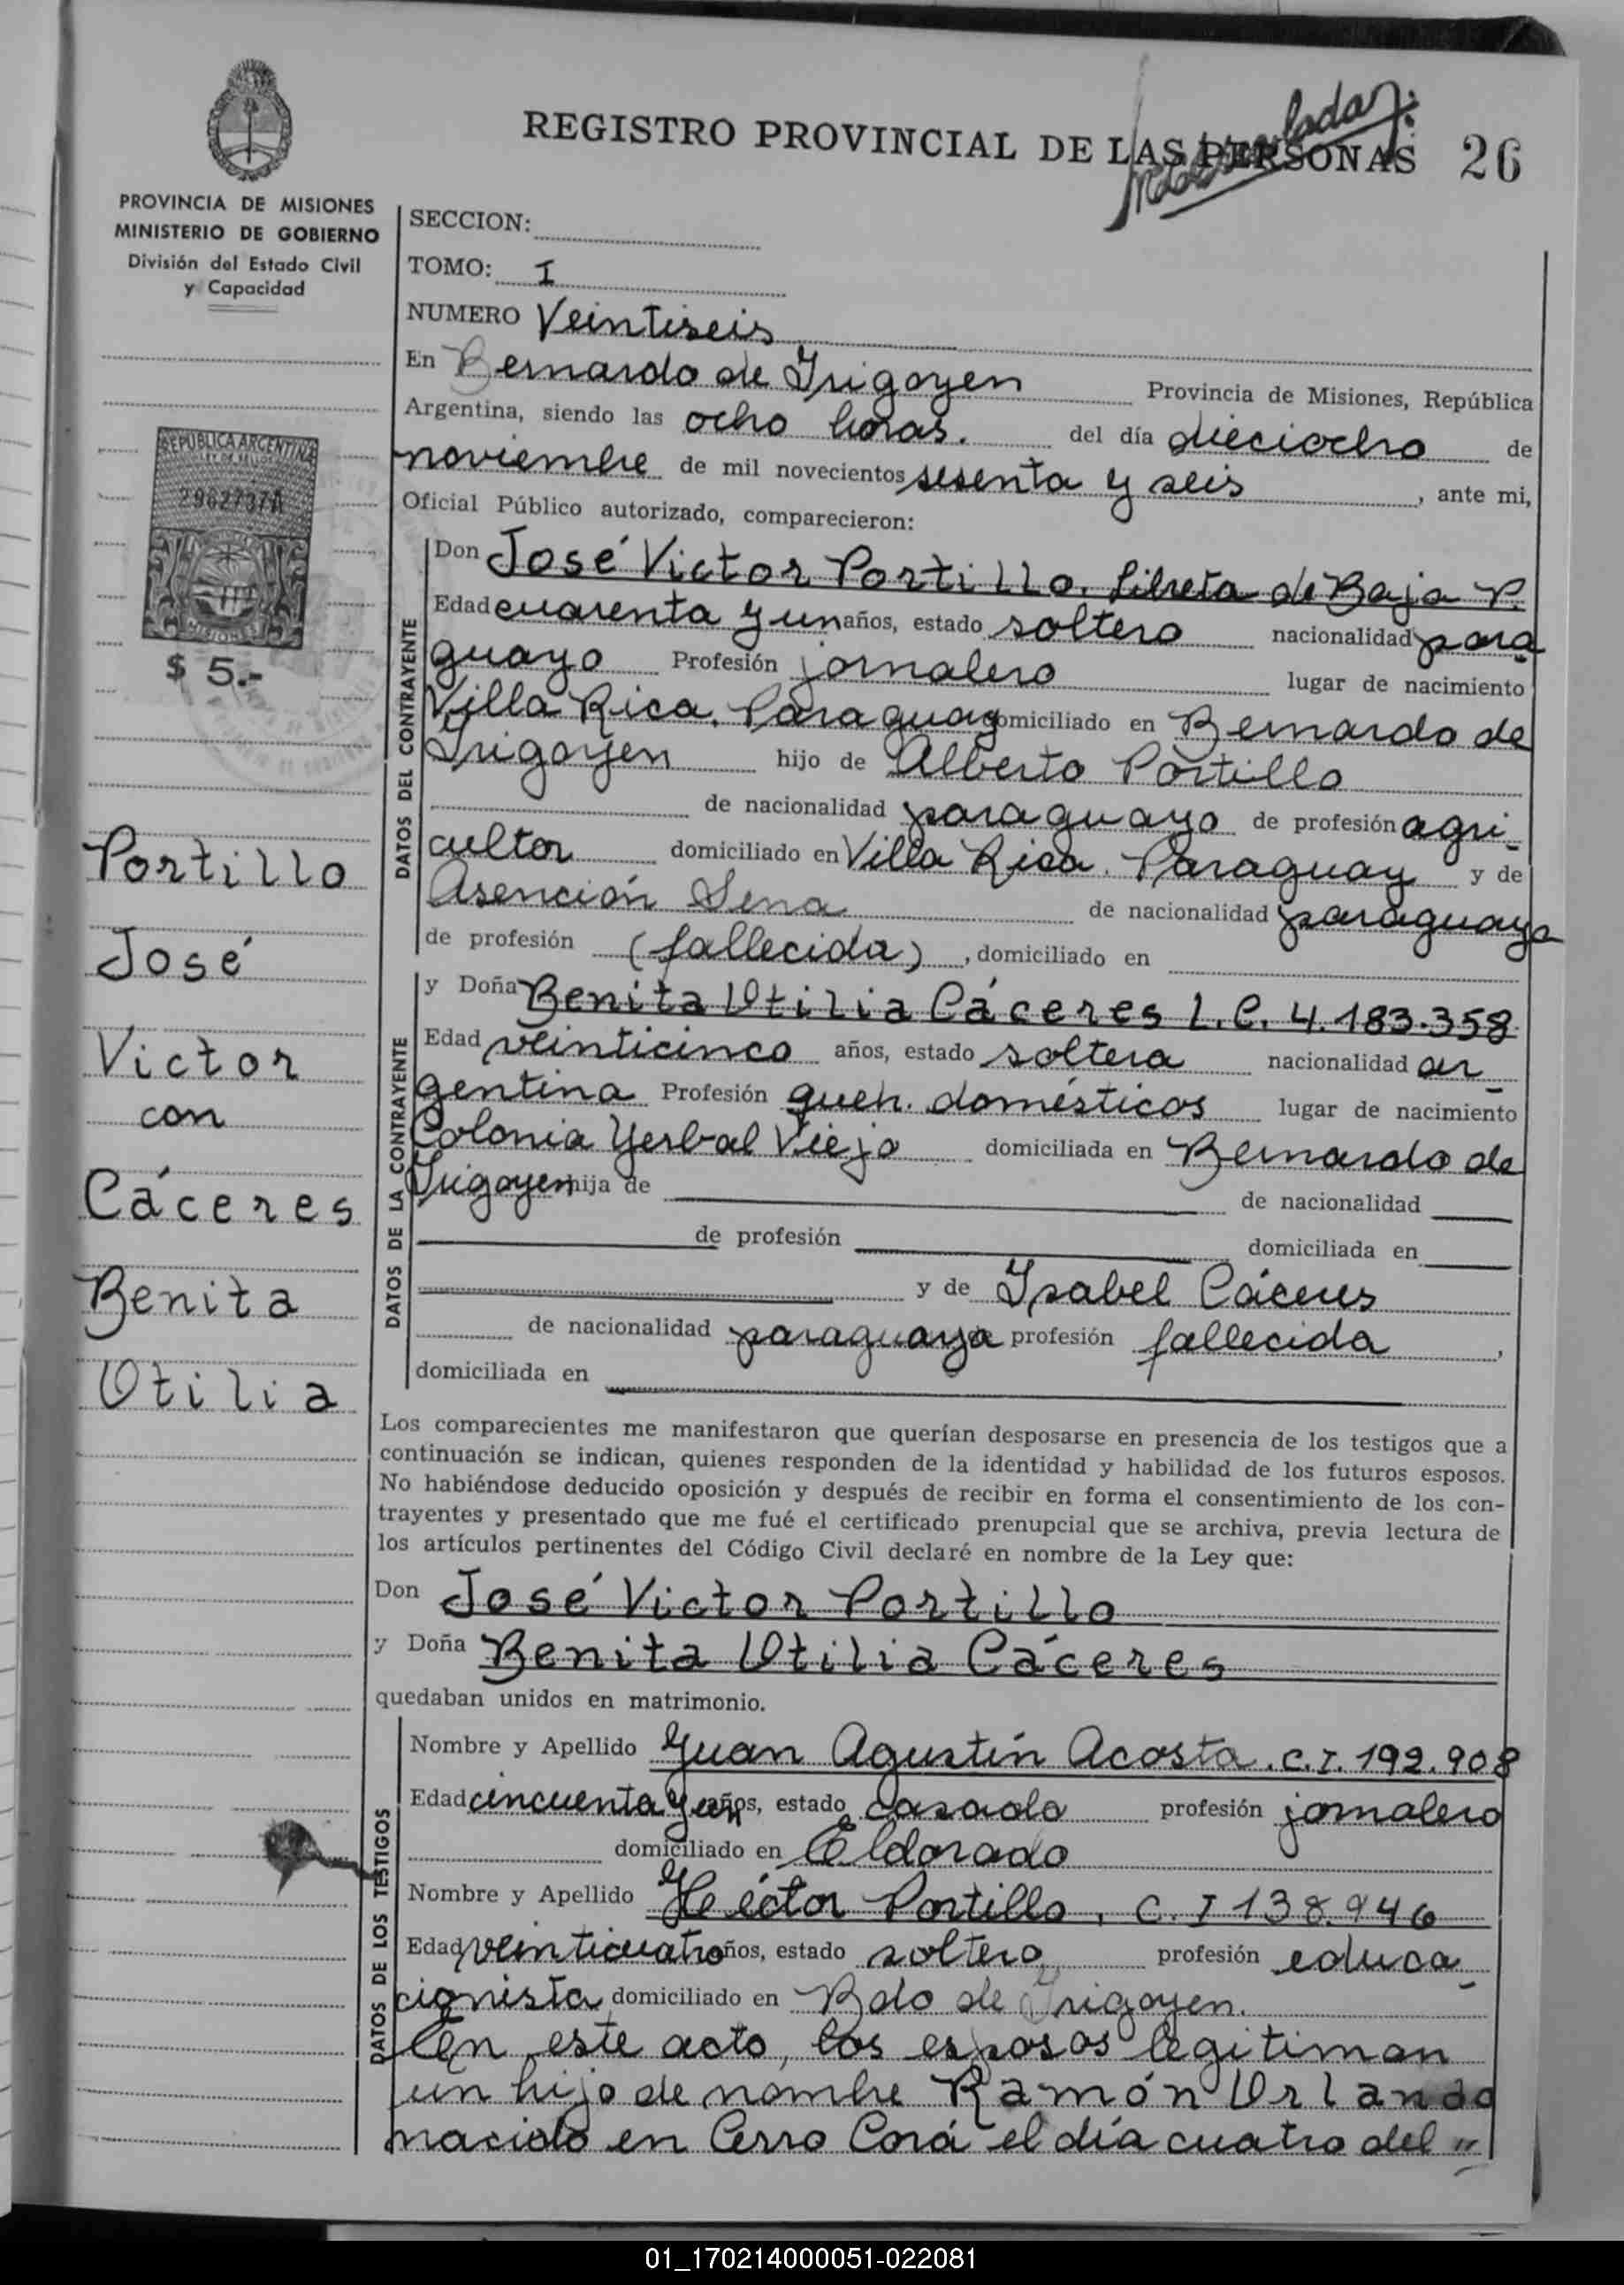 REGISTRO PROVINCIAL DE LAS PERSONAS 26
PROVINCIA DE MISIONES
MINISTERIO DE GOBIERNO
División del Estado Civil
y Capacidad
REPUBLICA ARGENTINA
LEY DE SELLOS
MISIONES
$ 5.-
Portillo
José
Victor
con
Cáceres
Benita
Otilia
SECCION:
TOMO: I
NUMERO Veintiseis
En Bernardo de Irigoyen Provincia de Misiones, República
Argentina, siendo las ocho horas. del día dieciocho de
noviembre de mil novecientos sesenta y seis, ante mi,
Oficial Público autorizado, comparecieron:
DATOS DEL CONTRAYENTE
Don José Victor Portillo. Libreta de Baja P.
Edad cuarenta y un años, estado soltero nacionalidad para
guayo Profesión jornalero lugar de nacimiento
Villa Rica. Paraguay domiciliado en Bernardo de
Irigoyen hijo de Alberto Portillo
de nacionalidad paraguayo de profesión agri-
cultor domiciliado en Villa Rica. Paraguay y de
Asención Sena de nacionalidad paraguaya
de profesión (fallecida), domiciliado en
DATOS DE LA CONTRAYENTE
y Doña Benita Otilia Cáceres L.C. 4.183.358
Edad veinticinco años, estado soltera nacionalidad ar-
gentina Profesión queh. domésticos lugar de nacimiento
Colonia Yerbal Viejo domiciliada en Bernardo de
Irigoyen hija de de nacionalidad
de profesión domiciliada en
y de Isabel Cáceres
de nacionalidad paraguaya de profesión fallecida,
domiciliada en
Los comparecientes me manifestaron que querían desposarse en presencia de los testigos que a
continuación se indican, quienes responden de la identidad y habilidad de los futuros esposos.
No habiéndose deducido oposición y después de recibir en forma el consentimiento de los con-
trayentes y presentado que me fué el certificado prenupcial que se archiva, previa lectura de
los artículos pertinentes del Código Civil declaré en nombre de la Ley que:
Don José Victor Portillo
y Doña Benita Otilia Cáceres
quedaban unidos en matrimonio.
DATOS DE LOS TESTIGOS
Nombre y Apellido Juan Agustín Acosta. C.I. 192.908
Edad cincuenta y un años, estado casado profesión jornalero
domiciliado en Eldorado
Nombre y Apellido Héctor Portillo, C. I 138.946
Edad veinticuatro años, estado soltero profesión educa-
cionista domiciliado en Bdo de Irigoyen.
En este acto, los esposos legitiman
un hijo de nombre Ramón Orlando
nacido en Cerro Corá el día cuatro del "
01_170214000051-022081